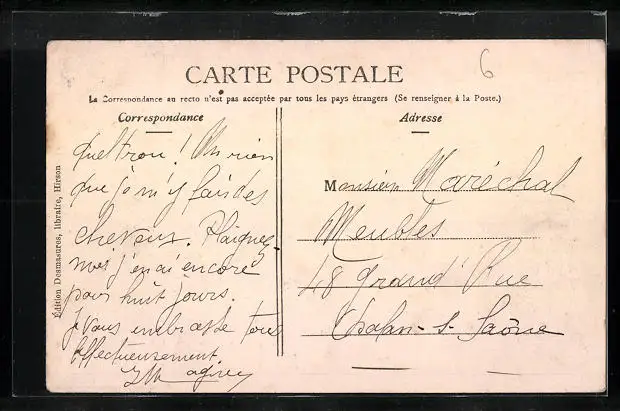 CARTE POSTALE
6
La Correspondance au recto n'est pas acceptée par tous les pays étrangers (Se renseigner à la Poste.)
Correspondance
Quel trou !
que je m'y fais des
cheveux. Plaignez
moi j'en ai encore
pour huit jours.
Je vous embrasse tous
affectueusement
Édition Desmasures, libraire, Hirson
Adresse
Monsieur Maréchal
Meubles
48 Grand'Rue
Chalon-s-Saône